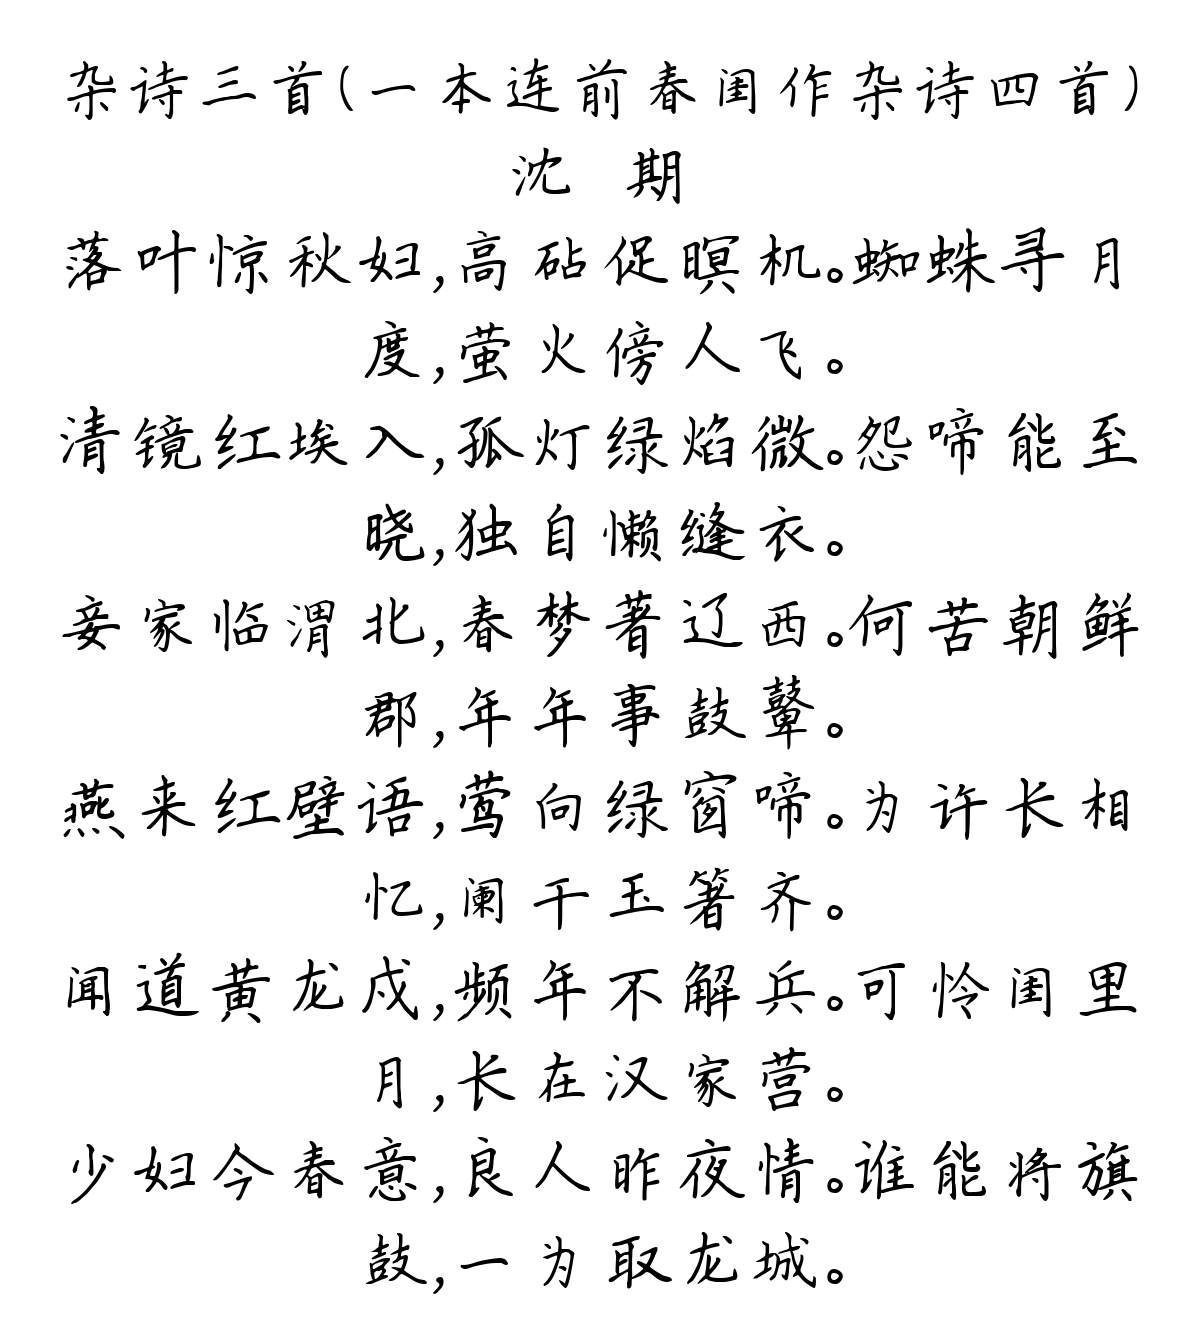 杂诗三首(一本连前春闺作杂诗四首)
沈 期
落叶惊秋妇,高砧促暝机。蜘蛛寻月
度,萤火傍人飞。
清镜红埃入,孤灯绿焰微。怨啼能至
晓,独自懒缝衣。
妾家临渭北,春梦著辽西。何苦朝鲜
郡,年年事鼓鼙。
燕来红壁语,莺向绿窗啼。为许长相
忆,阑干玉箸齐。
闻道黄龙戍,频年不解兵。可怜闺里
月,长在汉家营。
少妇今春意,良人昨夜情。谁能将旗
鼓,一为取龙城。